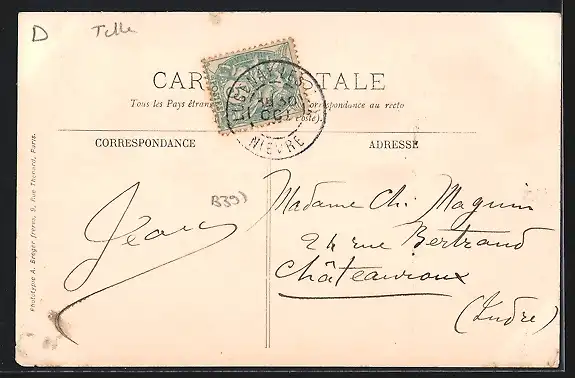 D
CARTE POSTALE
Tous les Pays étran
orrespondance au recto
Poste).
NIEVRE
OCT
CORRESPONDANCE
ADRESSE
B39)
Jean
Madame Ch. Maguin
24 rue Bertrand
Châteauroux
(Indre)
Phototypie A. Breger frères, 9, Rue Thénard, Paris.